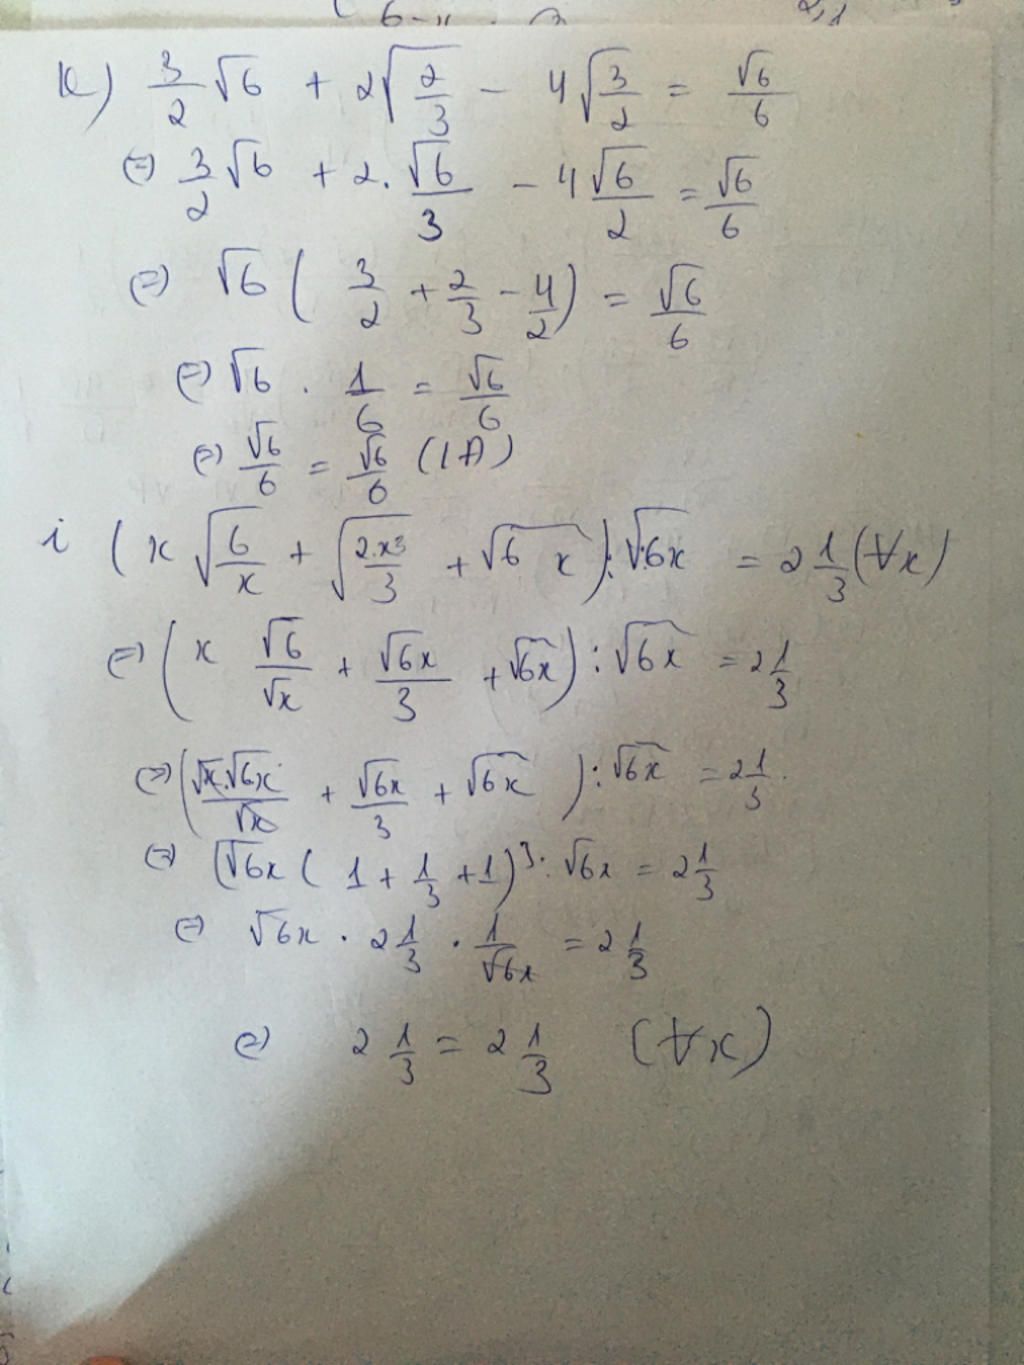 k) 3/2 √6 + 2√(2/3) - 4√(3/2) = √6/6
(=) 3/2 √6 + 2. √6/3 - 4 √6/2 = √6/6
(=) √6 ( 3/2 + 2/3 - 4/2 ) = √6/6
(=) √6 . 1/6 = √6/6
(=) √6/6 = √6/6 (LĐ)
i ( x √(6/x) + √(2.x/3) + √(6 x) ) : √(6x) = 2 1/3 (∀x)
(=) ( x √6/√x + √(6x)/3 + √(6x) ) : √(6x) = 2 1/3
(=) ( √x.√(6x)/√x + √(6x)/3 + √(6x) ) : √(6x) = 2 1/3 .
(=) [√6x ( 1 + 1/3 + 1 ) : √6x = 2 1/3
(=) √6x . 2 1/3 . 1/√6x = 2 1/3
(=) 2 1/3 = 2 1/3 (∀x)